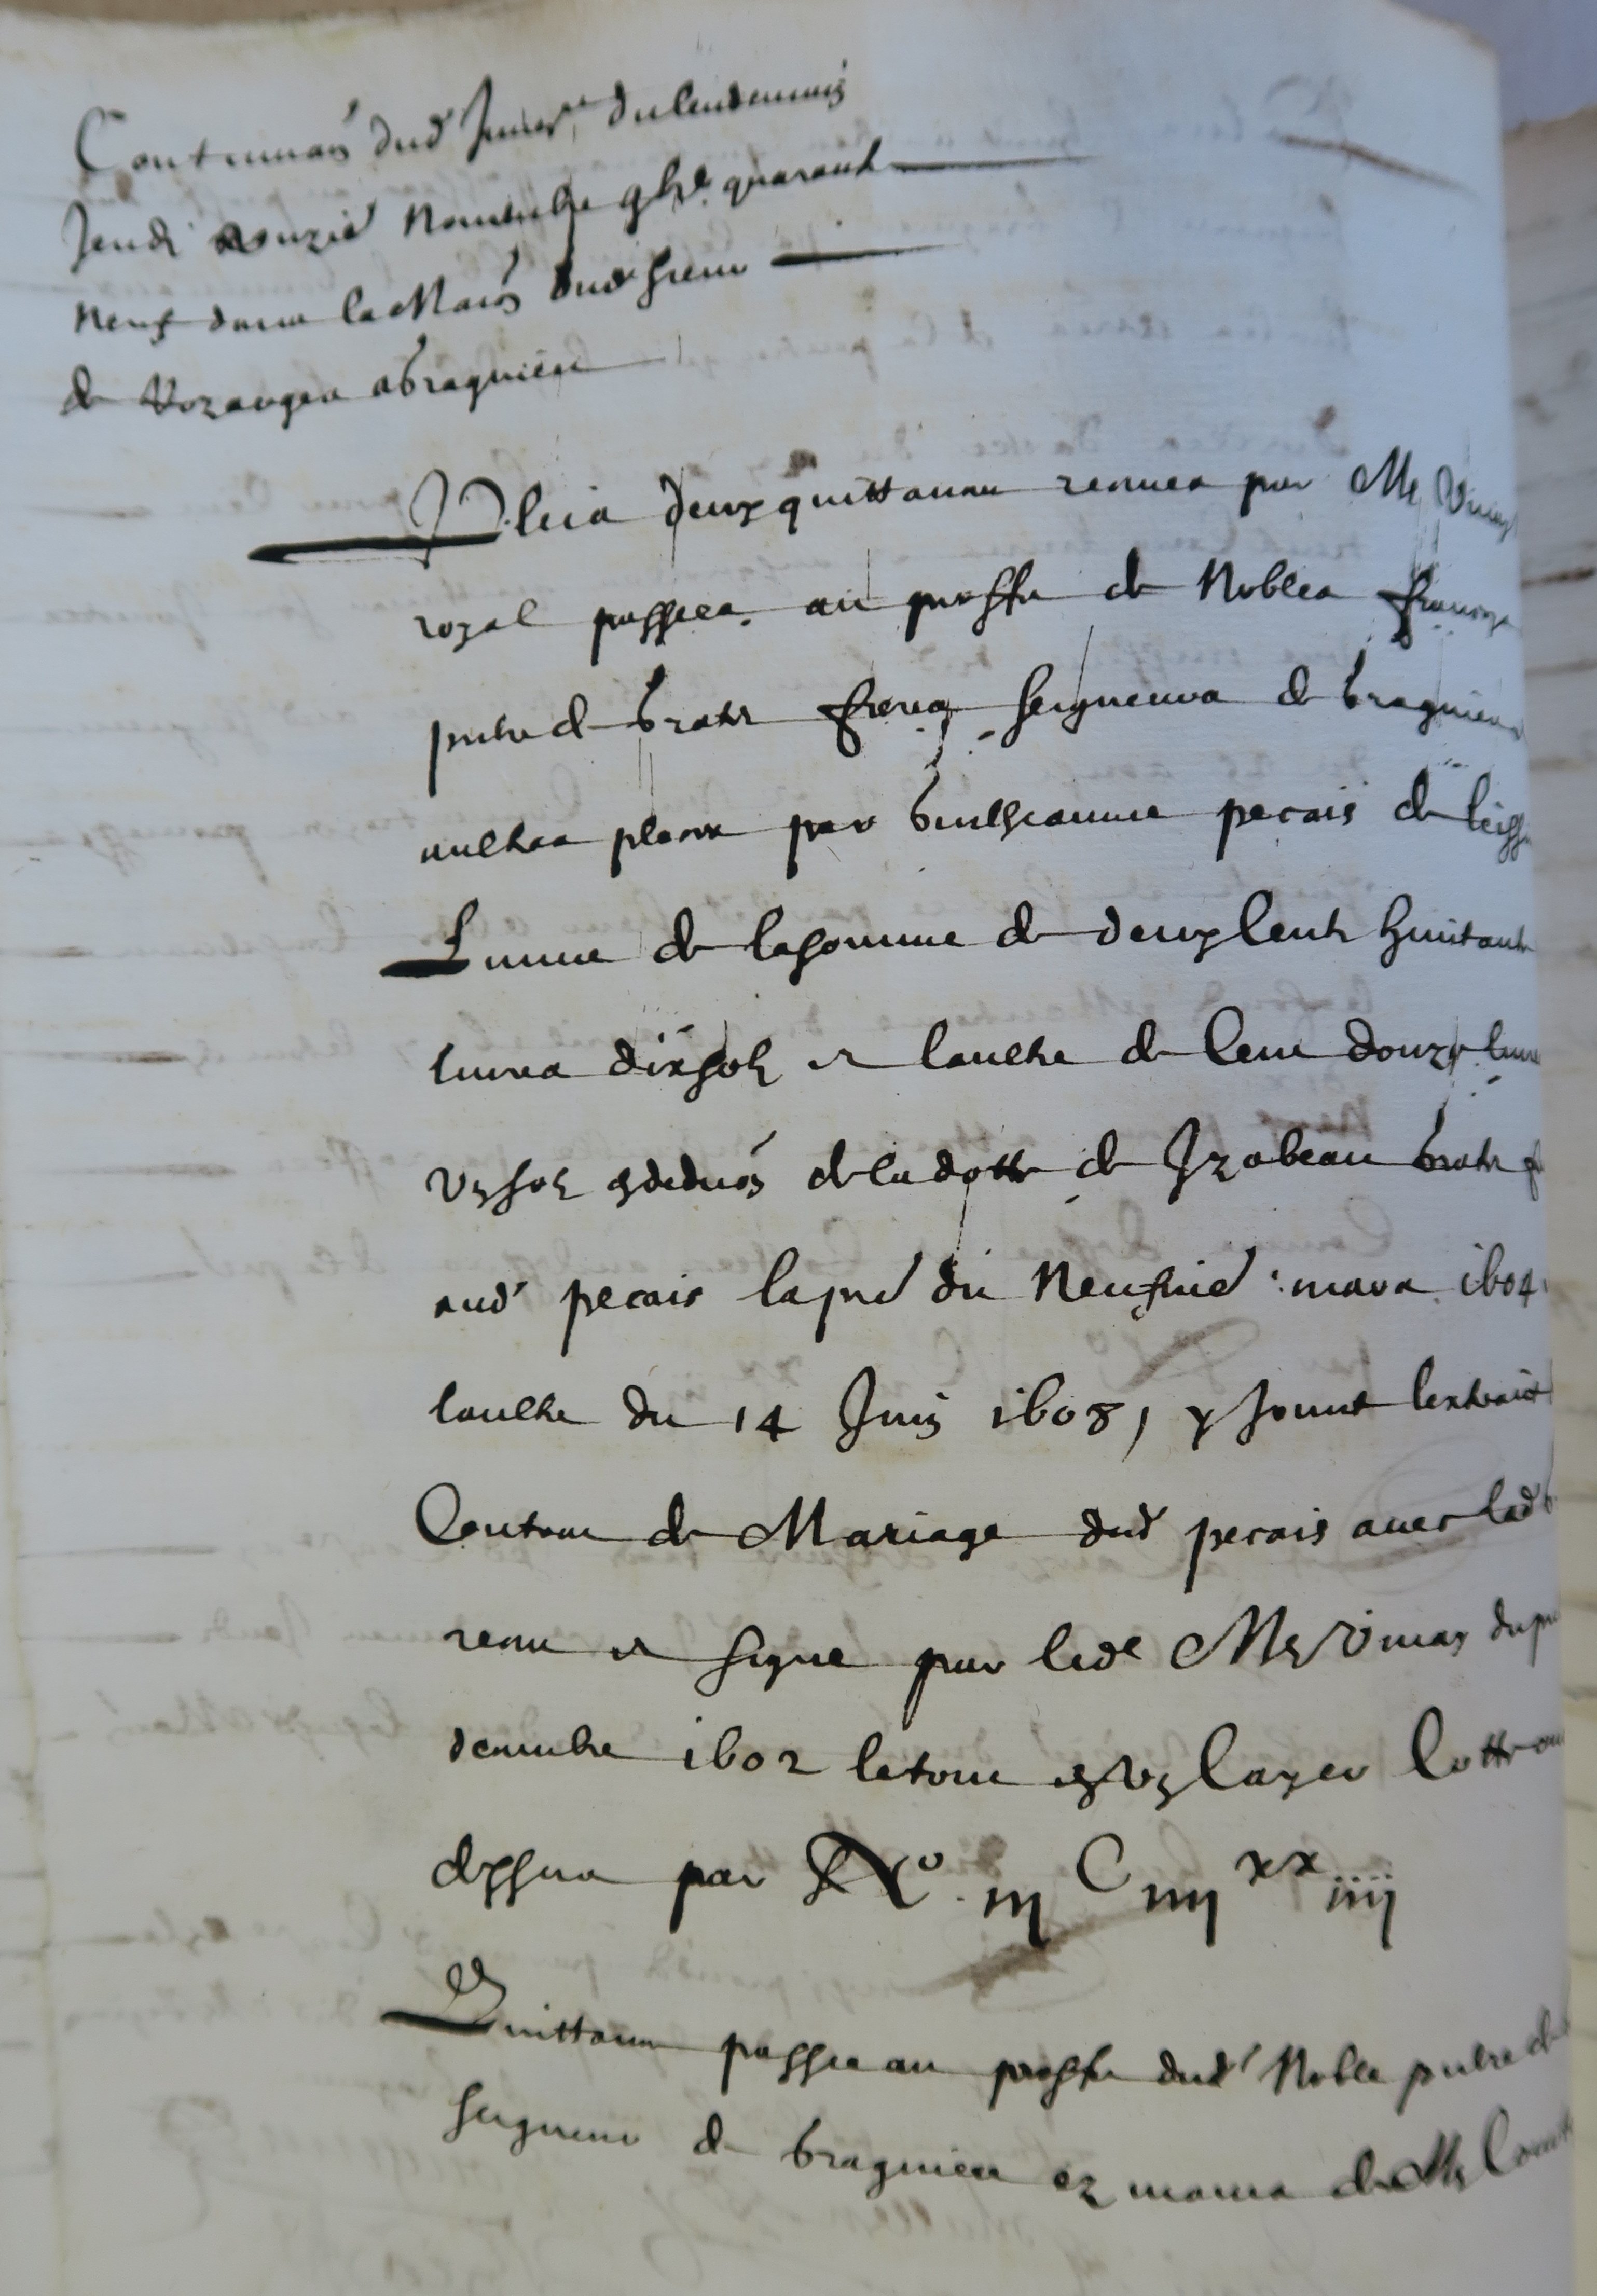 Continuaõn dud Inuere du lendemain
Jeudi onzie Nouembre gbre quarante
neuf dans la Maiõn dud sieur
de Vozanges a bragnieu
Plus deux quittances receues par Me
royal passees au proffit de Nobles francois
pierre de brotz freres seigneurs de bragnieu
aultres places par Guilheaume pecais de
Lunne de la somme de deux centz huitante
liures dix solz et laultre de cent douze liures
ung solz et deduõn de la dotte de Izabeau brotz
aud pecais la pre du Neufuie mars 1604
laultre du 14 Juin 1608, y Joinct lextraict
Contrac de Mariage dud pecais auec lad
receu et signe par led Me Vimar du
decembre 1602 le tout en ung cayer cotte
dessus par No iijC iiijxx iiij
Quittance passee au proffit dud Noble pierre de
seigneur de bragnieu ez mains de Me